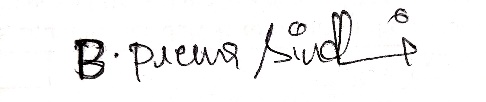 B. Prema Sindhu